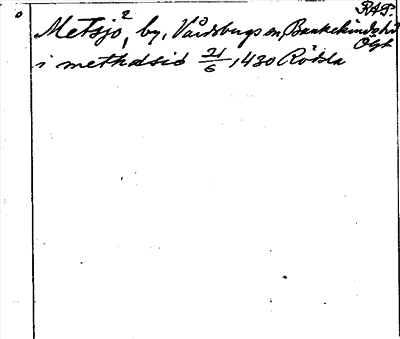 RAP.
Metsjö, 2 by, Vårdsbergs sn, Bankekinds hd
Ögl
i methalsiö 21/6 1430 Rödsla